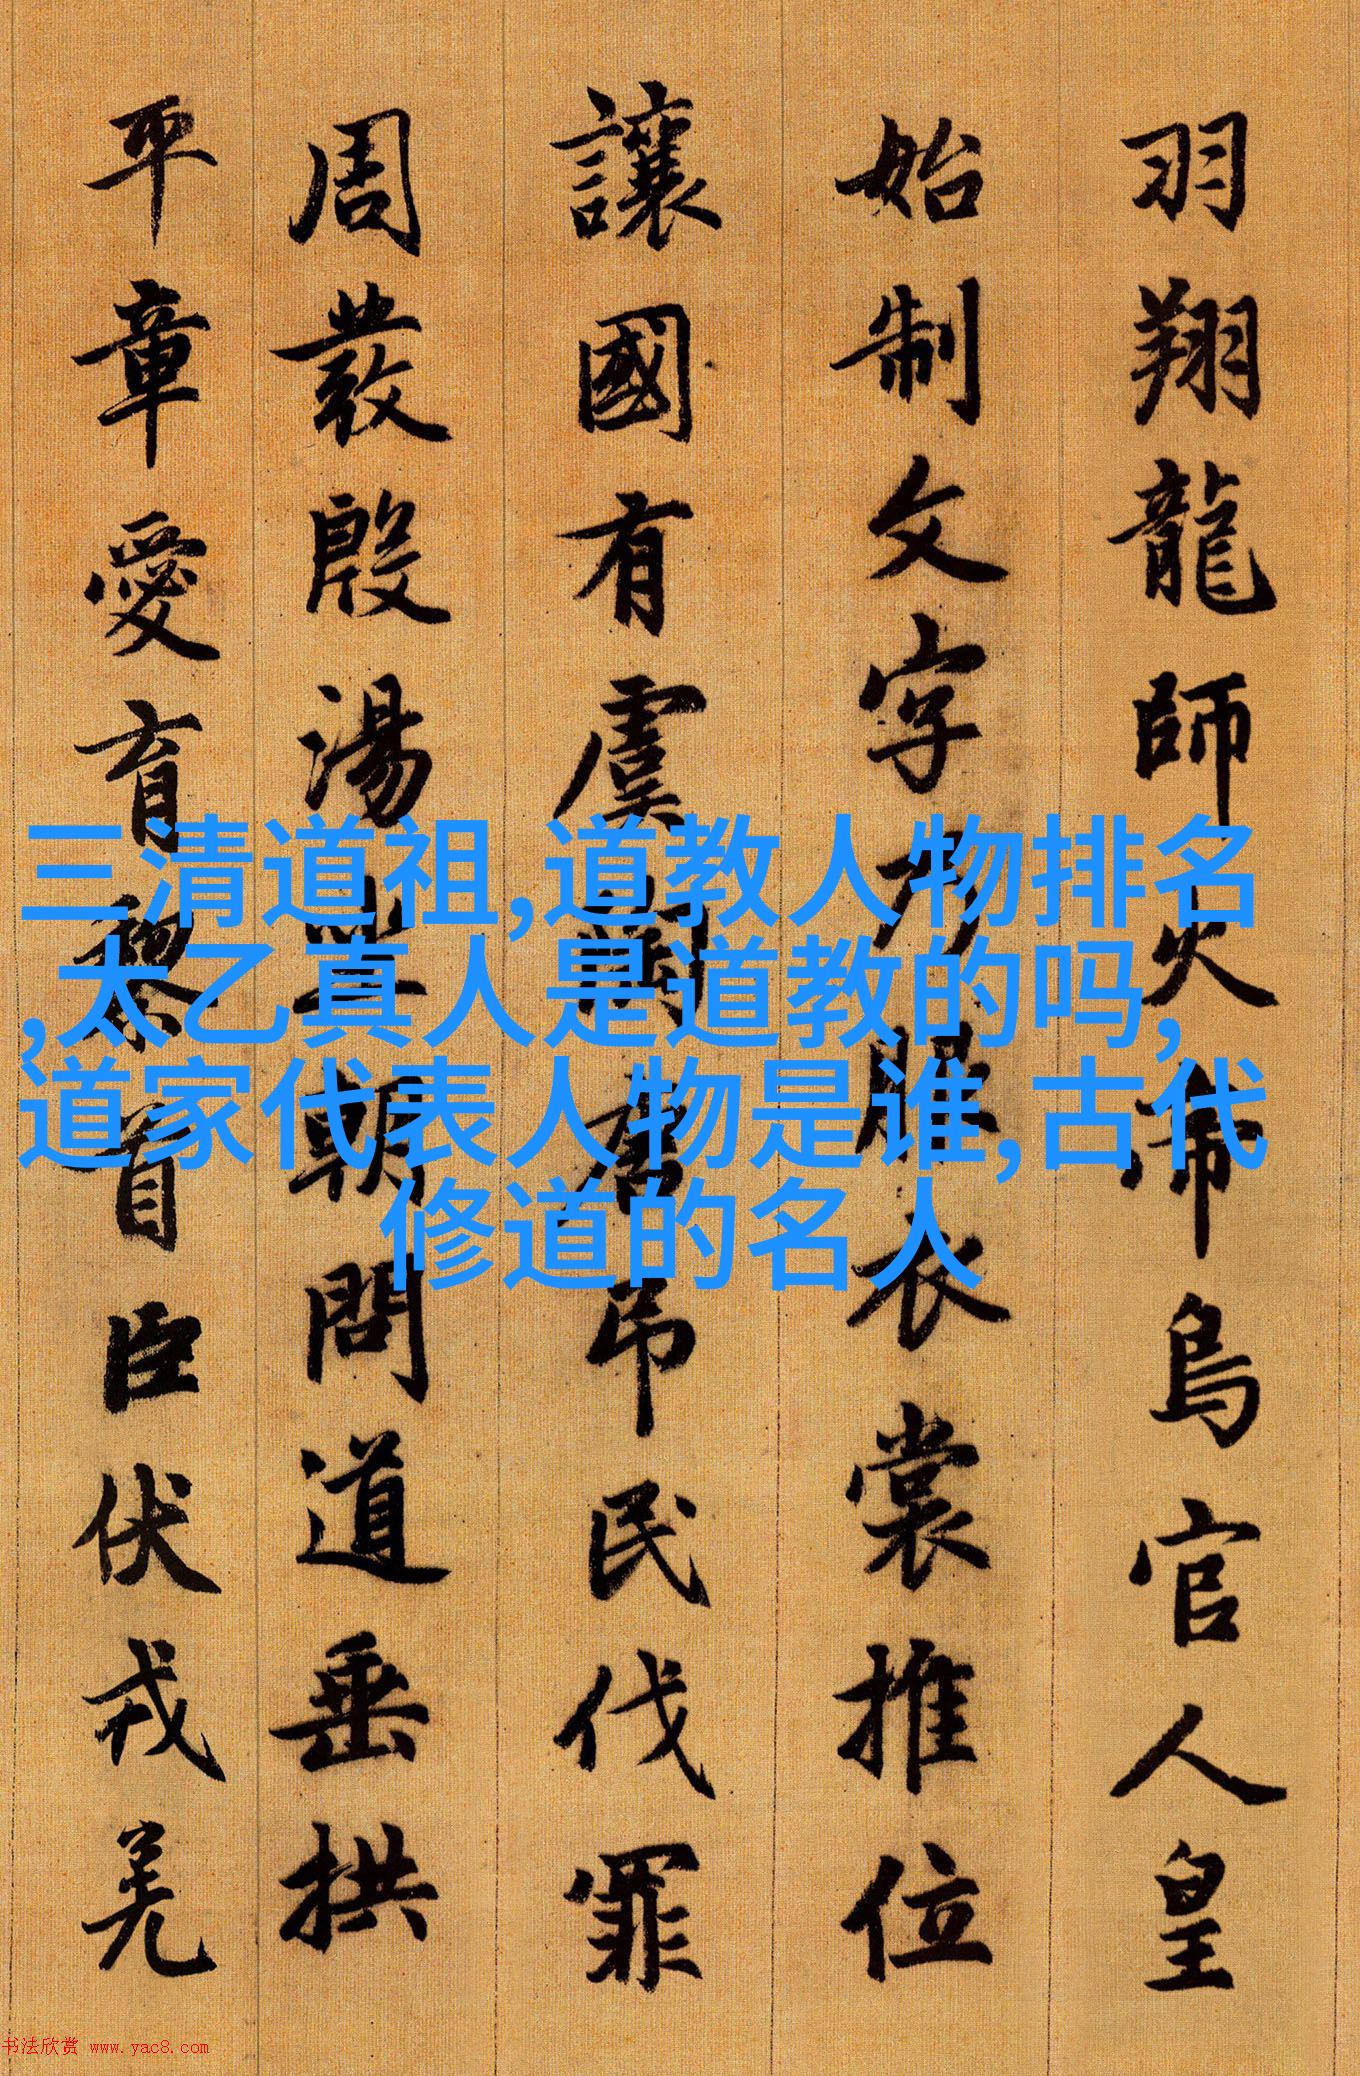 羽翔龍師火帝鳥官人皇
始制文字乃服衣裳推位
讓國有虞陶唐吊民伐罪
周發殷湯坐朝問道垂拱
平章愛育黎首臣伏戎羌
三清道祖,道教人物排名
,太乙真人是道教的吗,
道家代表人物是谁,古代
修道的名人
书法欣赏 www.yac8.com